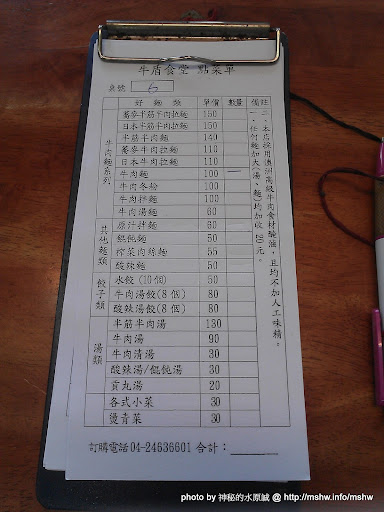 牛盾食堂 點菜單
桌號 6
好麵類 單價 數量 備註
牛肉麵系列
蕃茄半筋半肉拉麵 150
日本半筋半肉拉麵 150
半筋半肉麵 140
蕃茄牛肉拉麵 110
日本牛肉拉麵 110
牛肉麵 100
牛肉冬粉 100
牛肉拌麵 100
牛肉湯麵 60
其他麵類
原汁拌麵 60
餛飩麵 50
榨菜肉絲麵 55
酸辣麵 50
餃子類
水餃(10個) 50
牛肉湯餃(8個) 80
酸辣湯餃(8個) 80
湯類
半筋半肉湯 130
牛肉湯 90
牛肉清湯 30
酸辣湯/餛飩湯 30
貢丸湯 20
各式小菜 30
燙青菜 30
一、任何麵加大(湯、麵)均加收20元。
二、本店採用澳洲高級牛肉食材醃滷，且均不加人工味精。
訂購電話 04-24636601 合計：
photo by 神秘的水原誠 @ http://mshw.info/mshw